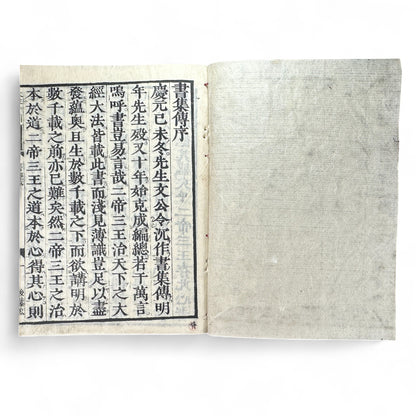 書集傳序
慶元己未冬先生文公令沉作書集傳明
年先生歿又十年始克成編總若干萬言
嗚呼書豈易言哉二帝三王治天下之大
經大法皆載此書而淺見薄識豈足以盡
發蘊奧且生於數千載之下而欲講明於
數千載之前亦已難矣然二帝三王之治
本於道二帝三王之道本於心得其心則